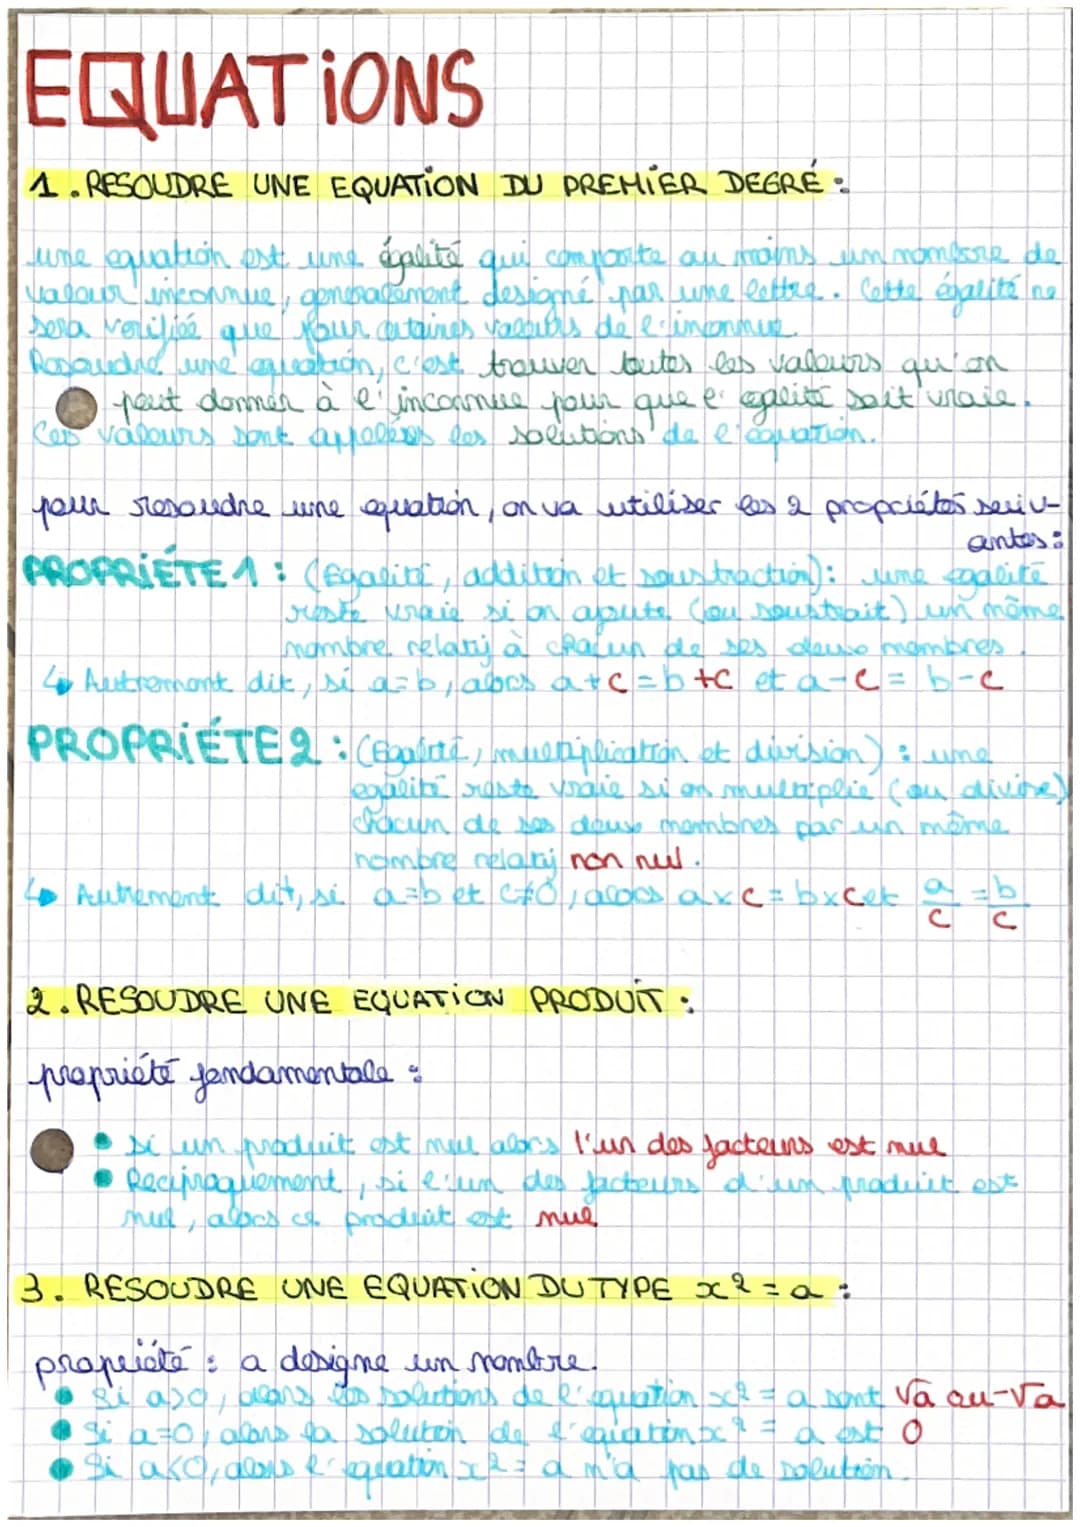 EQUATIONS
1. RESOUDRE UNE EQUATION DU PREMIER DEGRÉ :
une equation est une égalité qui comporte au moins un nombre de
valeur inconnue, generalement designé par une lettre. Cette égalité ne
sera verifiée que pour certaines valeurs de l'inconnue.
Resoudre une equation, c'est trouver toutes les valeurs qu'on
peut donner à l'inconnue pour que l'egalité soit vraie.
Ces valeurs sont appelées les solutions de l'equation.
pour resoudre une equation, on va utiliser les 2 propriétés suiv-
antes :
PROPRIÉTE 1 : (Egalité, addition et soustraction) : une egalité
reste vraie si on ajoute (ou soustrait) un même
nombre relatif à chacun de ses deux membres.
↳ Autrement dit, si a=b, alors a+c=b+c et a-c= b-c
PROPRIÉTE 2 : (Egalité, multiplication et division) : une
egalité reste vraie si on multiplie (ou divise)
chacun de ses deux membres par un même
nombre relatif non nul.
↳ Autrement dit, si a=b et c≠0, alors a×c=b×c et a/c = b/c
2. RESOUDRE UNE EQUATION PRODUIT :
propriété fondamentale :
• si un produit est nul alors l'un des facteurs est nul
• Reciproquement, si l'un des facteurs d'un produit est
nul, alors ce produit est nul
3. RESOUDRE UNE EQUATION DU TYPE x² = a :
propriété : a designe un nombre.
• Si a>0, alors les solutions de l'equation x² = a sont √a ou -√a
• Si a=0, alors la solution de l'equation x² = a est 0
• Si a<0, alors l'equation x² = a n'a pas de solution.